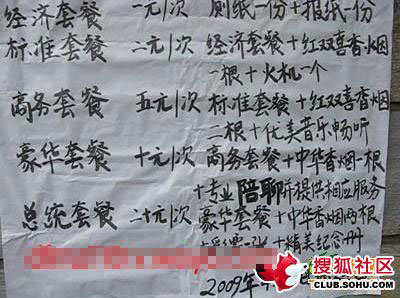 经济套餐 一元/次 厕纸一份+报纸一份
标准套餐 二元/次 经济套餐+红双喜香烟
一根+火机一个
商务套餐 五元/次 标准套餐+红双喜香烟
二根+优美音乐畅听
豪华套餐 十元/次 商务套餐+中华香烟一根
+专业陪聊并提供相应服务
总统套餐 二十元/次 豪华套餐+中华香烟两根
+彩票一张+精美纪念册
2009年
搜狐社区
CLUB.SOHU.COM